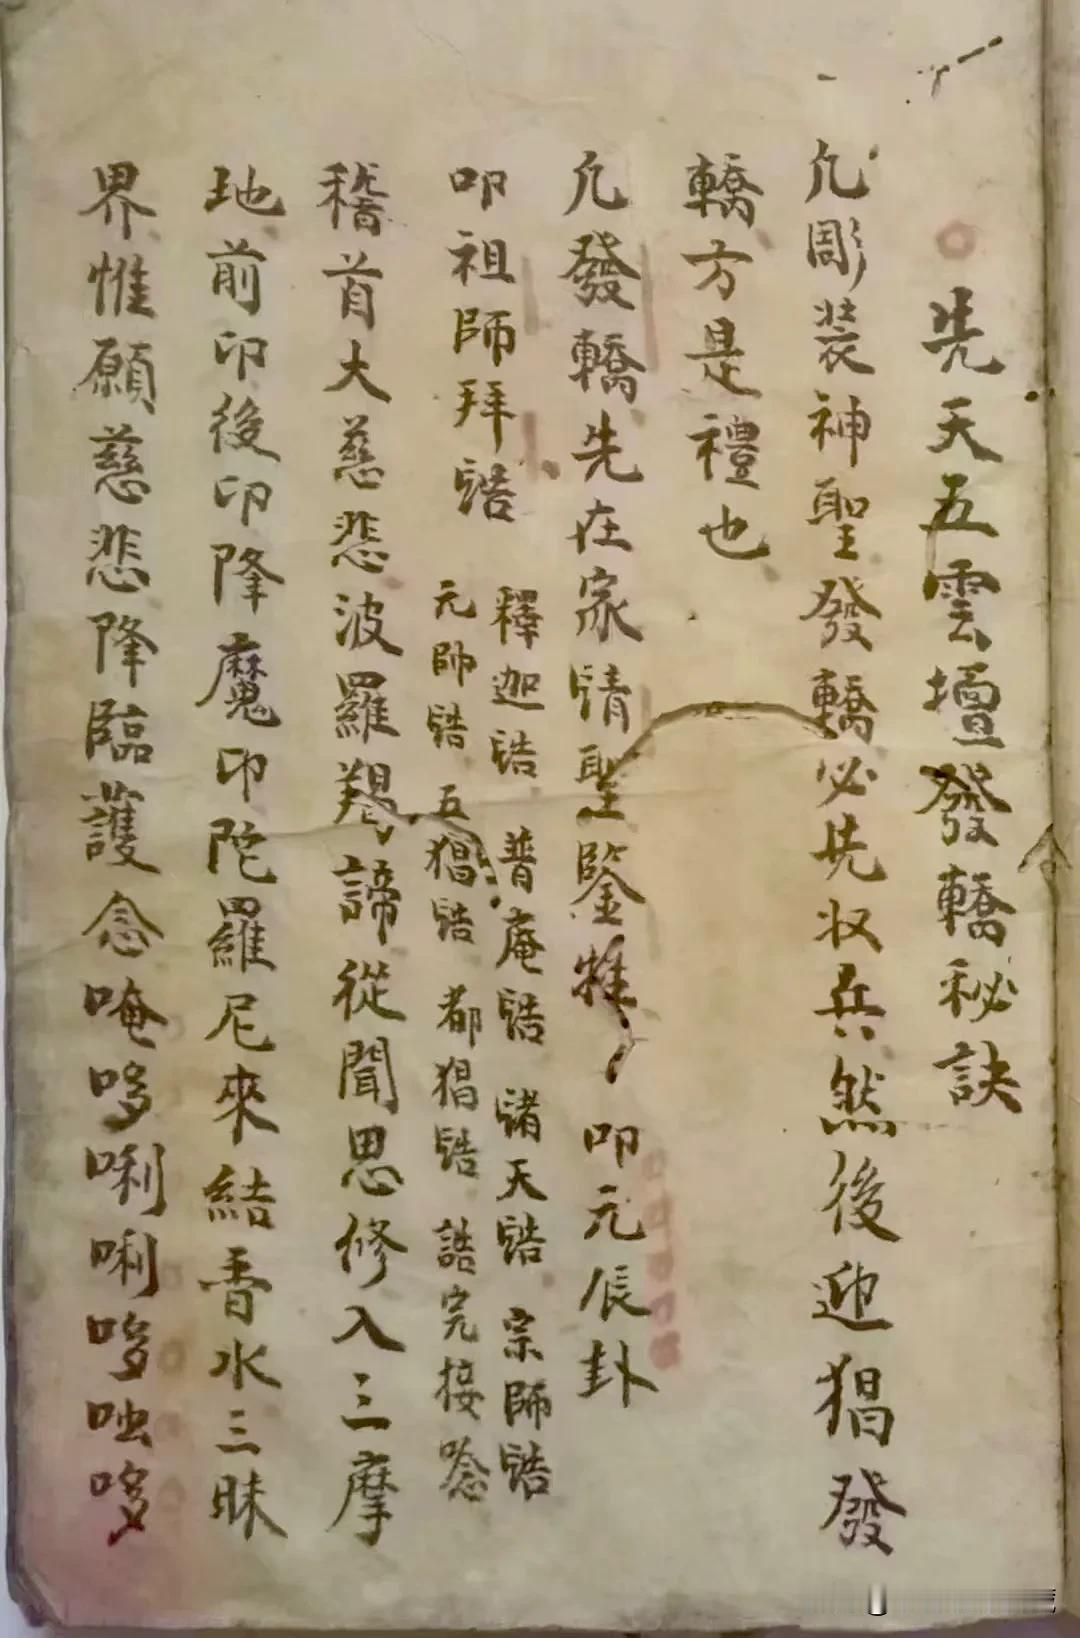 先天五雲壇發轎秘訣
凢彫裝神聖發轎必先收兵然後迎猖發
轎方是禮也
凢發轎先在家請聖鑒牲叩元辰卦
叩祖師拜誥
釋迦誥 普庵誥 諸天誥 宗師誥
元帥誥 五猖誥 都猖誥 誥完接唸
稽首大慈悲波羅羯諦從聞思修入三摩
地前印後印降魔印陀羅尼來結香水三昧
界惟願慈悲降臨護念唵哆唎唎哆㘕哆